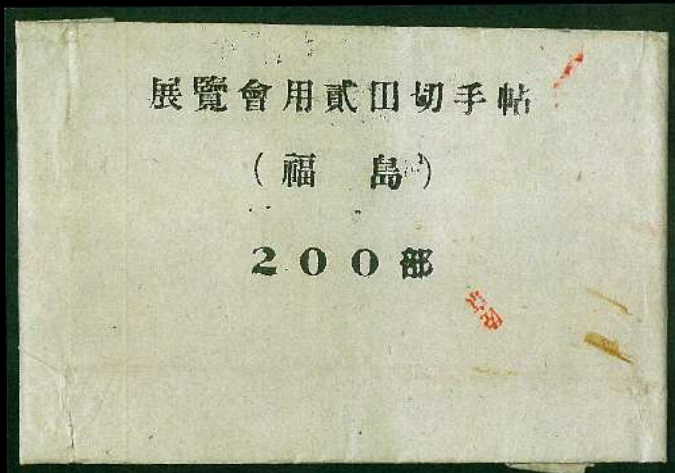 展覽會用貳囙切手帖
(福島)
200部